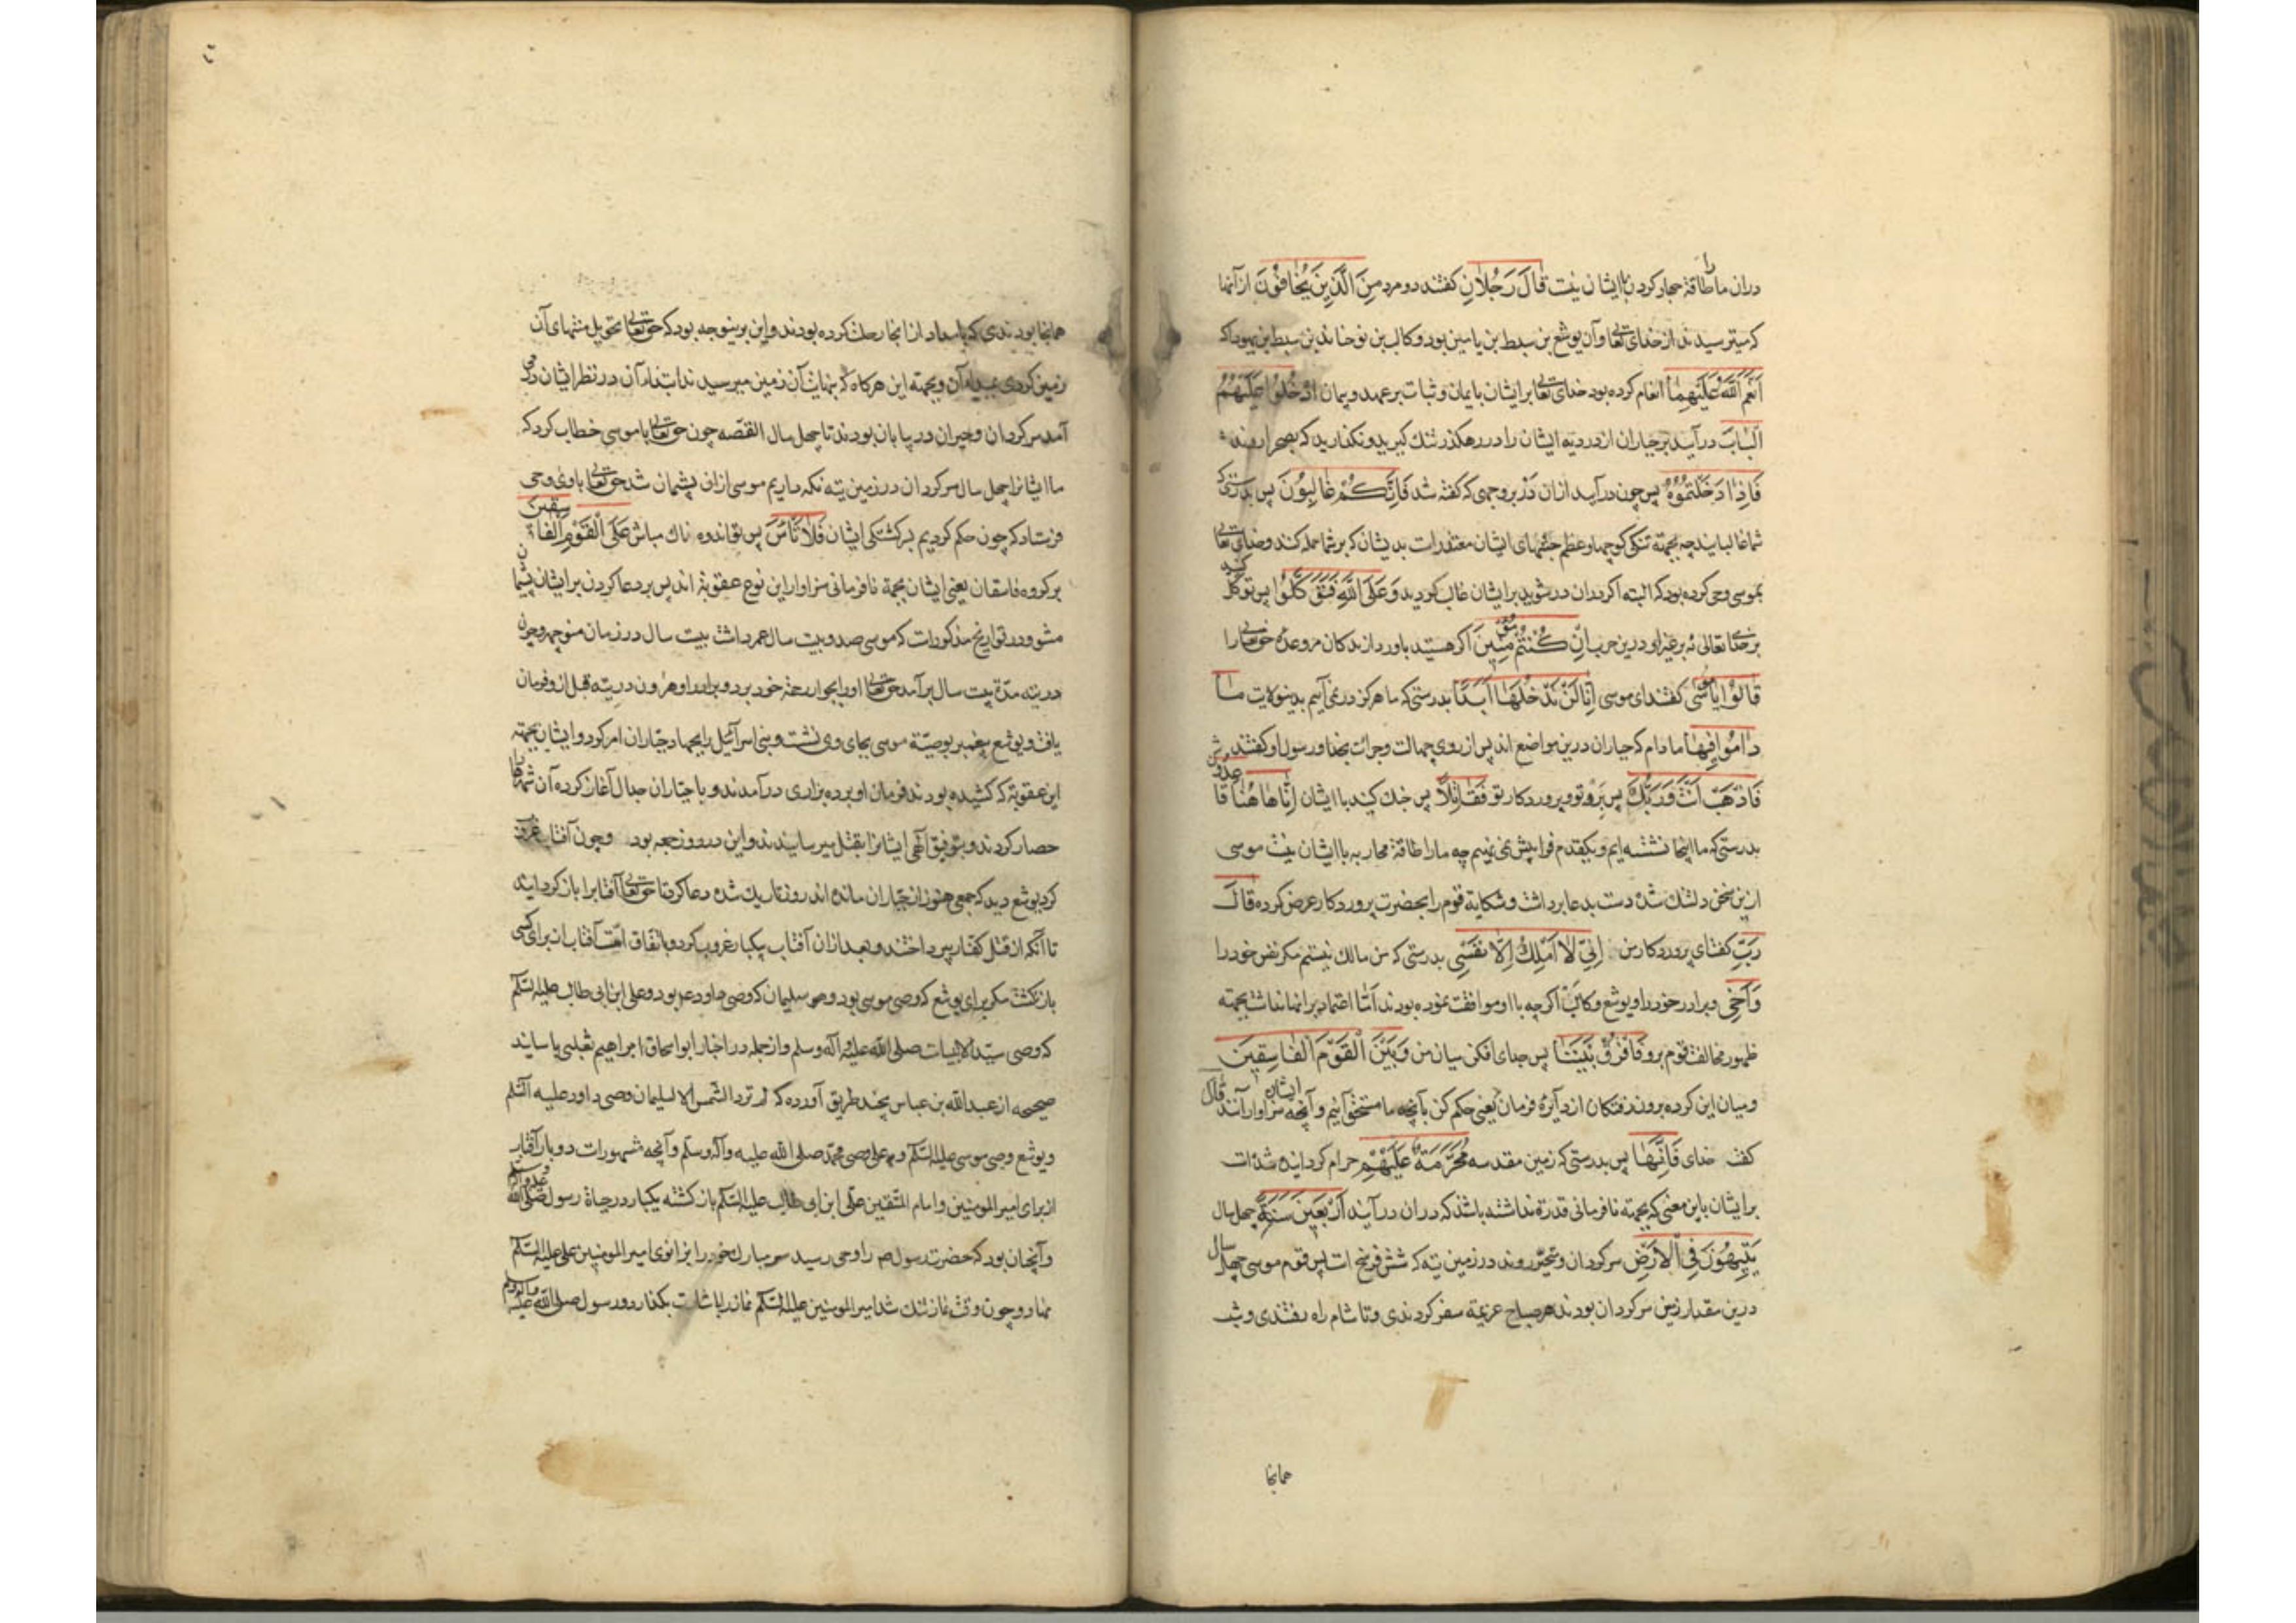 دران ما را طاقة جهاد کردن باایشان نیت قَالَ رَجُلَانِ کفتند دو مرد مِنَ الَّذِینَ یَخَافُونَ از آنها
که میترسیدند از خدای تعالی و آن یوشع بن سبط بن یامین بود و کالب بن یوحنا بن سبط بن یهودا که
اَنعَمَ اللّٰهُ عَلَیْهِمَا انعام کرده بود خدای تعالی بر ایشان بایمان و ثبات بر عهد و پیمان ادْخُلُوا عَلَیْهِمُ
الْبَابَ درآیید بر جباران از در دیه ایشان را در رهکذر تنك کیرید و نکذارید که بصحرا روند
فَاِذَا دَخَلْتُمُوهُ پس چون درآیید ازان در بر وجهی که کفته شد فَاِنَّکُمْ غَالِبُونَ پس بدرستی که
شما غالبانید چه بجهته تنکی کوچها و عظم جثهای ایشان معتذرات بدیشان که بر شما حمله کنند و خدای تعالی
بموسی وحی کرده بود که البته اکر دران در شوید بر ایشان غالب کردید وَ عَلَی اللّٰهِ فَتَوَکَّلُوا پس توکل کنید
بر خدا تعالی نه بر غیر او درین حرب اِنْ کُنْتُمْ مُؤْمِنِینَ اکر هستید باور دارندکان مر وعده حق تعالی را
قَالُوا یَا مُوسَی کفتند ای موسی اِنَّا لَنْ نَدْخُلَهَا اَبَدًا بدرستی که ما هرکز در نمی آییم بدین ولایت مَا
دَامُوا فِیهَا مادام که جباران درین مواضع اند پس از روی جهالت و جرات بخدا و رسول او کفتند
فَاذْهَبْ اَنْتَ وَ رَبُّکَ پس برو تو و پروردکار تو فَقَاتِلَا پس جنك کنید با ایشان اِنَّا هَاهُنَا قَاعِدُونَ
بدرستی که ما اینجا نشسته ایم و یکقدم فرا پیش نمی نهیم چه ما را طاقة محاربه با ایشان نیت موسی
ازین سخن دلتنك شده دست بدعا برداشت و شکایة قوم را بحضرت پروردکار عرض کرده قَالَ
رَبِّ کفت ای پروردکار من اِنِّی لَا اَمْلِكُ اِلَّا نَفْسِی بدرستی که من مالك نیستم مکر نفس خود را
وَ اَخِی و برادر خود را و یوشع و کالب اکرچه با او موافقت نموده بودند اما اعتماد بر انها نداشت بجهته
ظهور مخالفت قوم برو فَافْرُقْ بَیْنَنَا پس جدای افکن میان من وَ بَیْنَ الْقَوْمِ الْفَاسِقِینَ
و میان این کروه برون رفتکان از دآیرهٔ فرمان یعنی حکم کن بآنچه ما مستحق آنیم و آنچه ایشان سزاوار آنند قَالَ
کفت خدای فَاِنَّهَا پس بدرستی که زمین مقدسه مُحَرَّمَةٌ عَلَیْهِمْ حرام کردانیده شده ات
بر ایشان باین معنی که بجهته نافرمانی قدرة نداشته باشند که دران درآیند اَرْبَعِینَ سَنَةً چهل سال
یَتِیهُونَ فِی الْاَرْضِ سرکردان و متحیر روند در زمین تیه که شش فرسخ ات پس قوم موسی چهل سال
درین مقدار زمین سرکردان بودند هر صباح عزیمة سفر کردندی و تا شام راه رفتندی و شب
همانجا
همانجا بودندی که بامداد از انجا رحلت کرده بودند و این برین وجه بود که حق تعالی تحویل منتهای آن
زمین کردی بمبداء آن و بجهته این هرکاه که بنهایت آن زمین میرسیدند ابتداء آن در نظر ایشان درمی
آمد سرکردان و حیران در بیابان بودند تا چهل سال القصه چون حق تعالی با موسی خطاب کرد که
ما ایشانرا چهل سال سرکردان در زمین تیه نکه داریم موسی ازان پشمان شد حق تعالی باو وحی
فرستاد که چون حکم کردیم بر کشتکی ایشان فَلَا تَاْسَ پس تو اندوه ناك مباش عَلَی الْقَوْمِ الْفَاسِقِینَ
بر کروه فاسقان یعنی ایشان بجهة نافرمانی سزاوار این نوع عقوبة اند پس بر دعا کردن بر ایشان پشیمان
مشو و در تواریخ مذکورات که موسی صد و بیت سال عمر داشت بیت سال در زمان منوچهر و چون
در تیه مدة بیت سال بر آمد حق تعالی او را بجوار رحمة خود برد و برادر او هرون در تیه قبل از و فرمان
یافت و یوشع پیغمبر بوصیة موسی بجای وی نشت و بنی اسرآئیل را بجهاد جباران امر کرد و ایشان بجهته
این عقوبة که کشیده بودند فرمان او برده بزاری درآمدند و با جباران جدال آغاز کرده آن شهر را
حصار کردند و بتوفیق الهی ایشانرا بقتل میرسانیدند و این در روز جمعه بود و چون آفتاب غروب
کرد یوشع دید که جمعی هنوز از جباران مانده اند روز تاریك شده دعا کرد تا حق تعالی آفتاب را باز کردانید
تا آنکه از قتل کفار پرداختند و بعد ازان آفتاب یکبار غروب کرد و باتفاق امت آفتاب از برای کسی
باز نکشت مکر برای یوشع که وصی موسی بود و هو سلیمان که وصی داود بود و علی ابن ابی طالب علیه السلم
که وصی سید الانبیات صلی الله علیه و آله و سلم و از جمله در اخبار ابو اسحاق ابراهیم ثعلبی با سانید
صحیحه از عبدالله بن عباس بچند طریق آورده که لم ترد الشمس الا لسلیمان وصی داود علیه السلم
و یوشع وصی موسی علیه السلم و علی وصی محمد صلی الله علیه و آله و سلم و آنچه مشهورات دو بار آفتاب
از برای امیر المومنین و امام المتقین علی ابن ابی طالب علیه السلم باز کشته یکبار در حیاة رسول صلی الله علیه و آله و سلم
و آنچنان بود که حضرت رسول ص را وحی رسید سر مبارك خود را بزانوی امیر المومنین علی علیه السلم
نهاد و چون وقت نماز تنك شد امیر المومنین علیه السلم نماز را باشارت بکذارد و رسول صلی الله علیه و آله و سلم